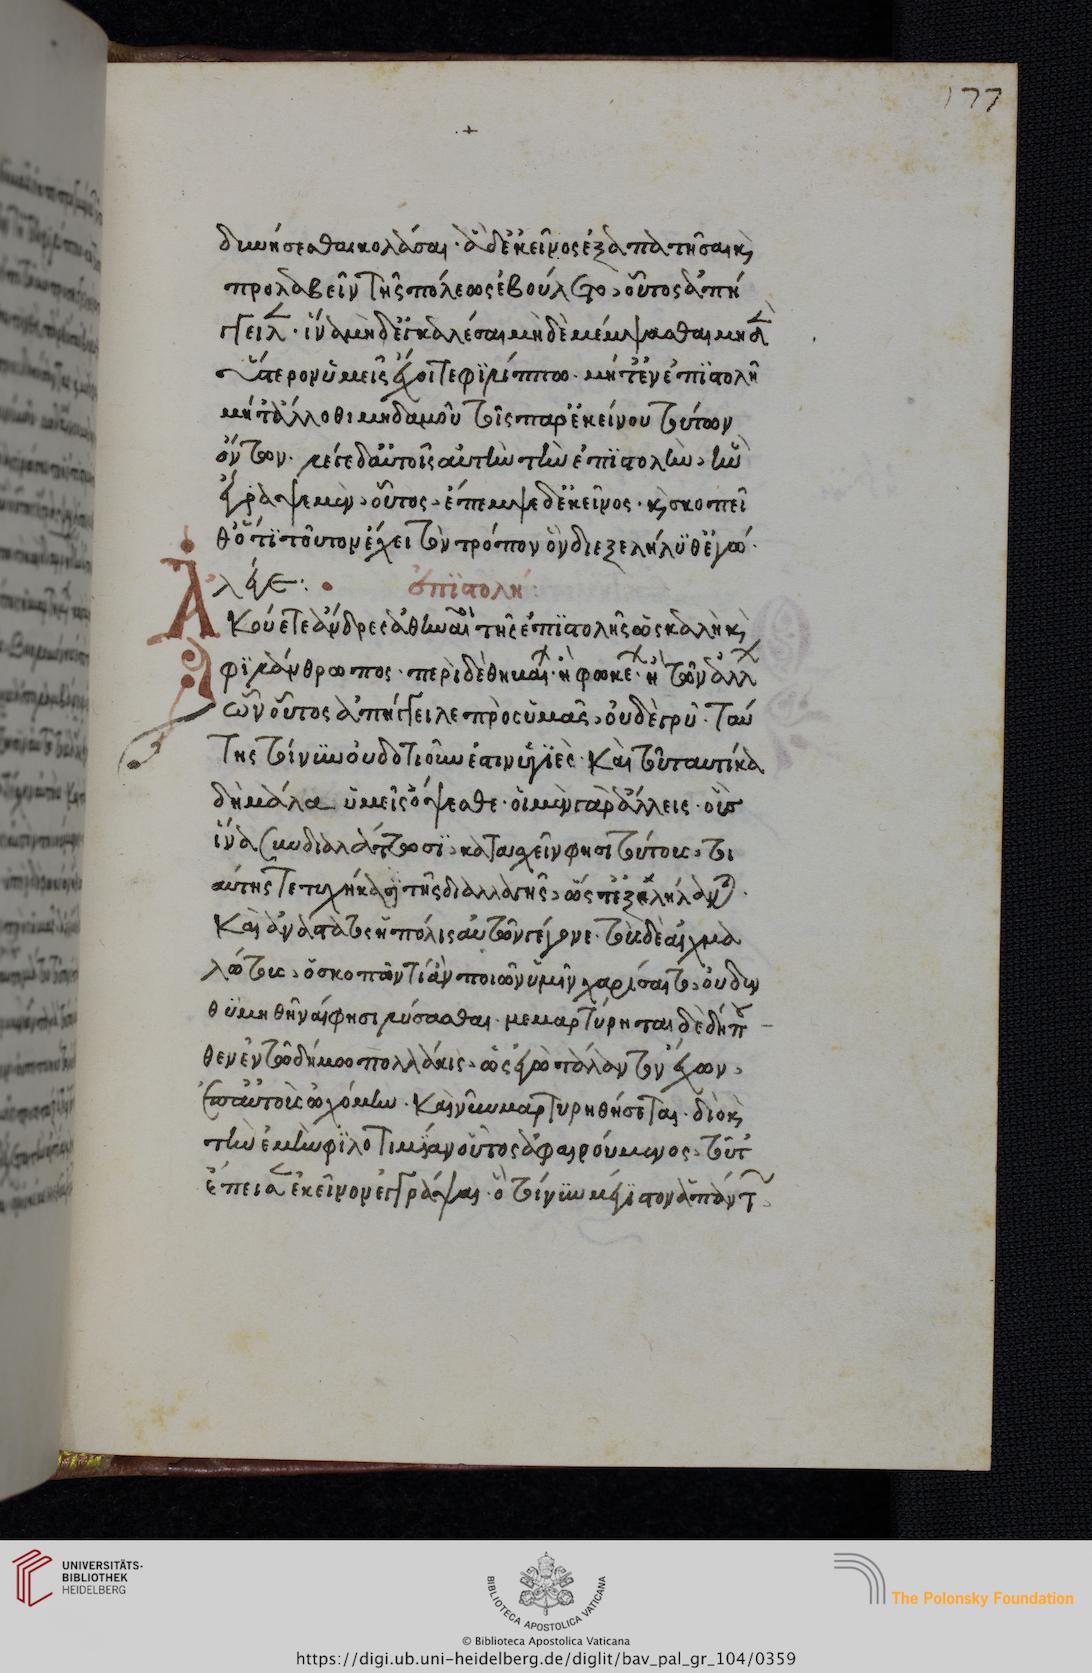 177
δυνήσεσθαι κολάσαι· ἃ δ' ἐκεῖνος ἐξαπατῆσαι κ
προλαβεῖν τῆς πόλεως ἐβούλετο, οὗτος ἀπή
γγειλ· ἵνα μηδ' ἐγκαλέσαι μηδὲ μέμψασθαι μηδ
ὕστερον ὑμεῖς ἔχοιτε φιλίππω· μήτ' ἐν ἐπιστολῆ
μήτ' ἄλλοθι μηδαμοῦ τῆς παρ' ἐκείνου τούτων
ὄντων· λέγε δ' αὐτοῖς αὐτὴν τὴν ἐπιστολὴν, ἣν
ἔγραψε μὲν, οὗτος, ἔπεμψε δ' ἐκεῖνος· κ σκοπεῖ
θ' ὅτι τοῦτον ἔχει τὸν τρόπον ὃν διεξελήλυθ' ἐγώ·
λέγε: ἐπιστολή:
Ἀκούετε ἄνδρες ἀθηναῖοι τῆς ἐπιστολῆς ὡς καλὴ κ
φιλάνθρωπος· περὶ δὲ θηβαι· ἢ φωκε· ἢ τῶν ἄλλ
ὧν οὗτος ἀπήγγειλε πρὸς ὑμᾶς, οὐδὲ γρῦ· ταύ
της τοίνυν οὐδοτιοῦν ἐστιν ὑγιὲς· καὶ τοῦτ' αὐτίκα
δὴ μάλα ὑμεῖς ὄψεσθε· οἱ μὲν γὰρ ἀλλεῖς· οὓς
ἵνα συνδιαλλάττωσι, κατασχεῖν φησι τούτους, τοι
αύτης τετυχήκασι τῆς διαλλαγῆς, ὥστ' ἐξελήλαντ·
καὶ ἀνάστατος ἡ πόλις αὐτῶν γέγονε· τοὺς δὲ αἰχμα
λώτους, ὃ σκοπῶν τί ἂν ποιῶν ὑμῖν χαρίσαιτο, οὐδ' ἐν
θυμηθῆναι φησι λύσασθαι· μεμαρτύρηται δὲ δήπ
θεν ἐν τῶ δήμω πολλάκις, ὡς ἐγὼ τάλαντον ἔχων,
ἐπ' αὐτοὺς ὠχόμην· καὶ νῦν μαρτυρηθήσεται· διὸ κ
τὴν ἐμὴν φιλοτιμίαν οὗτος ἀφαιρούμενος, τοῦτ'
ἔπεισ ἐκεῖνον ἐγγράψαι· ὃ τοίνυν μέγιστον ἁπάντ
UNIVERSITÄTS-
BIBLIOTHEK
HEIDELBERG
BIBLIOTECA APOSTOLICA VATICANA
The Polonsky Foundation
© Biblioteca Apostolica Vaticana
https://digi.ub.uni-heidelberg.de/diglit/bav_pal_gr_104/0359